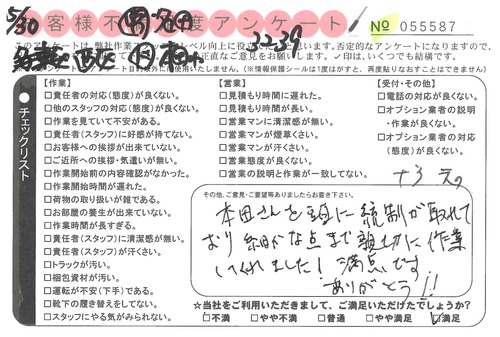 5/30
お客様不満足度アンケート
№ 055587
32-39
このアンケートは、弊社作業スタッフのレベル向上に役立てたいと思います。否定的なアンケートになりますので、
正直なご意見をお願いします。✓印は、いくつでも結構です。
使用いたしません。（※情報保護シールは1度はがすと、再度貼りなおすことはできません）
チェックリスト
【作業】
□責任者の対応(態度)が良くない。
□他のスタッフの対応(態度)が良くない。
□作業を見ていて不安がある。
□責任者(スタッフ)に好感が持てない。
□お客様への挨拶が出来ていない。
□ご近所への挨拶・気遣いが無い。
□作業開始前の内容確認がなかった。
□作業開始時間が遅れた。
□荷物の取り扱いが雑である。
□お部屋の養生が出来ていない。
□作業時間が長すぎる。
□責任者(スタッフ)に清潔感が無い。
□責任者(スタッフ)が汗くさい。
□トラックが汚い。
□梱包資材が汚い。
□運転が不安(下手)である。
□靴下の履き替えをしてない。
□スタッフにやる気がみられない。
【営業】
□見積もり時間に遅れた。
□見積もり時間が長い。
□営業マンに清潔感が無い。
□営業マンが煙草くさい。
□営業マンが汗くさい。
□営業態度が良くない。
□営業の説明と作業が一致してない。
【受付・その他】
□電話の対応が良くない。
□オプション業者の説明
・作業が良くない。
□オプション業者の対応
(態度)が良くない。
その他、ご意見・ご要望等ありましたらお書き下さい。
本田さんを頭に統制が取れて
おり細かな点まで親切に作業
してくれました！満点です
ありがとう!!
☆当社をご利用いただきまして、ご満足いただけたでしょうか?
□不満 □やや不満 □普通 □やや満足 ☑満足